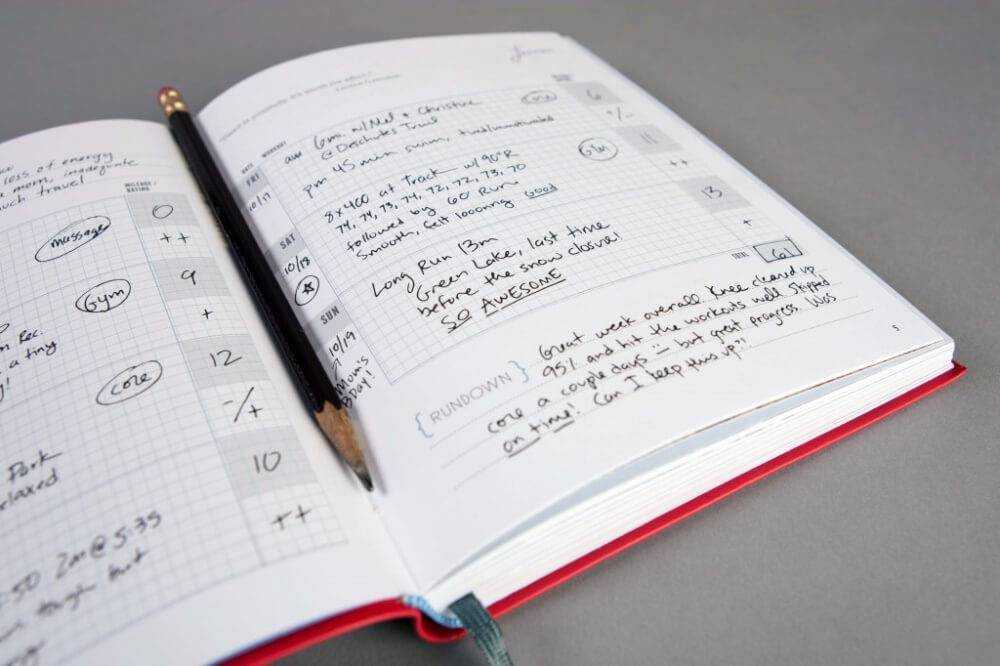 loss of energy
mom, inadequate
travel
MILEAGE/
RATING
massage
0
++
Gym
9
+
Rec.
a tiny
core
12
-/+
Park
10
relaxed
++
:50 2m @ 5:35
tough but
DATE WORKOUT
FRI
10/17
am 6mi w/ Mel + Christine
@ Deschutes Trail
core
6
pm 45 min swim, tired/unmotivated
+/-
SAT
10/18
8x400 at Track w/ 90"R
Gym
11
74, 74, 73, 74, 72, 72, 73, 70
++
followed by 60 Run
Smooth, felt looong Good
SUN
10/19
Mom's
BDay!
Long Run 13m
13
Green Lake, last time
+
before the snow closure!
SO AWESOME
TOTAL
61
{RUNDOWN}
Great week overall. Knee cleared up
95% and hit the workouts well. Skipped
core a couple days - but great progress. Was
on time! Can I keep this up?!
5